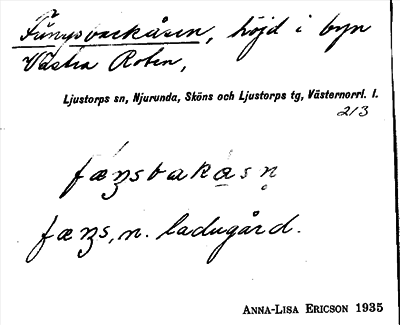 Funysbackåsen, höjd i byn
Västra Roten,
Ljustorps sn, Njurunda, Sköns och Ljustorps tg, Västernorrl. l.
213
fæȝsbakasn̥
fæȝs, n. ladugård.
ANNA-LISA ERICSON 1935